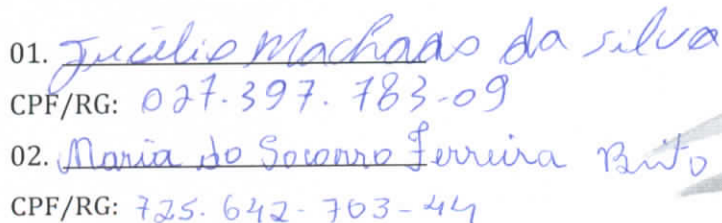 01. Jucélio Machado da silva
CPF/RG: 027.397.783-09
02. Maria do Socorro Ferreira Brito
CPF/RG: 725.642-703-44